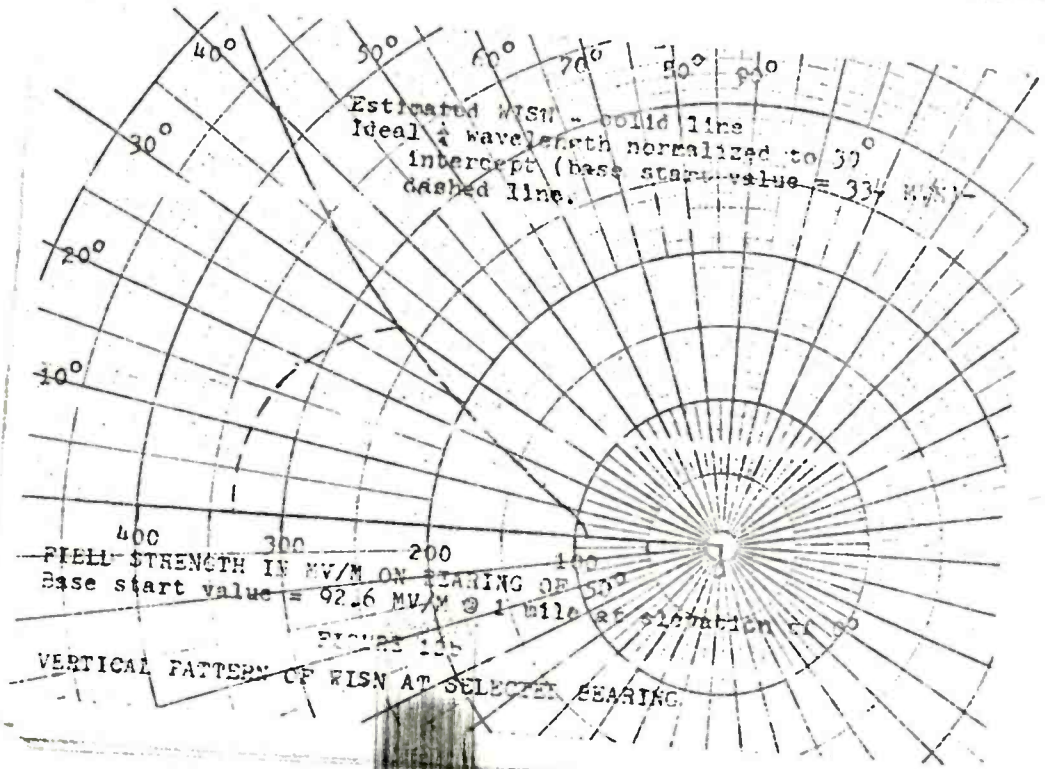 40°
50°
60°
70°
80°
30°
20°
10°
Estimated WISN - solid line
Ideal ¼ wavelength normalized to 30°
intercept (base start value = 334 MV/M)-
dashed line.
400
300
200
100
FIELD STRENGTH IN MV/M ON BEARING OF 50°
Base start value = 92.6 MV/M @ 1 mile at elevation of 0°
FIGURE
VERTICAL PATTERN OF WISN AT SELECTED BEARING